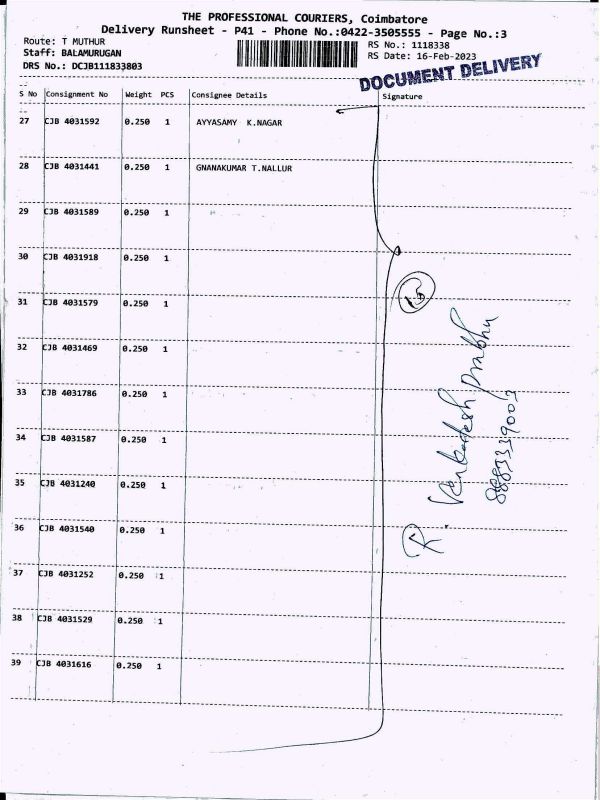 THE PROFESSIONAL COURIERS, Coimbatore
Delivery Runsheet - P41 - Phone No.:0422-3505555 - Page No.:3
Route: T MUTHUR
Staff: BALAMURUGAN
DRS No.: DCJB111833803
RS No.: 1118338
RS Date: 16-Feb-2023
DOCUMENT DELIVERY
S No Consignment No Weight PCS Consignee Details Signature
27 CJB 4031592 0.250 1 AYYASAMY K.NAGAR
28 CJB 4031441 0.250 1 GNANAKUMAR T.NALLUR
29 CJB 4031589 0.250 1
30 CJB 4031918 0.250 1
31 CJB 4031579 0.250 1
32 CJB 4031469 0.250 1
33 CJB 4031786 0.250 1
34 CJB 4031587 0.250 1
35 CJB 4031240 0.250 1
36 CJB 4031540 0.250 1
37 CJB 4031252 0.250 1
38 CJB 4031529 0.250 1
39 CJB 4031616 0.250 1
R. Venkatesh Prabhu
8883339003